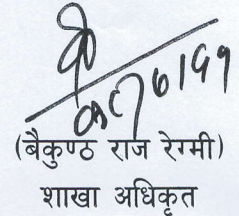 (बैकुण्ठ राज रेग्मी)
शाखा अधिकृत